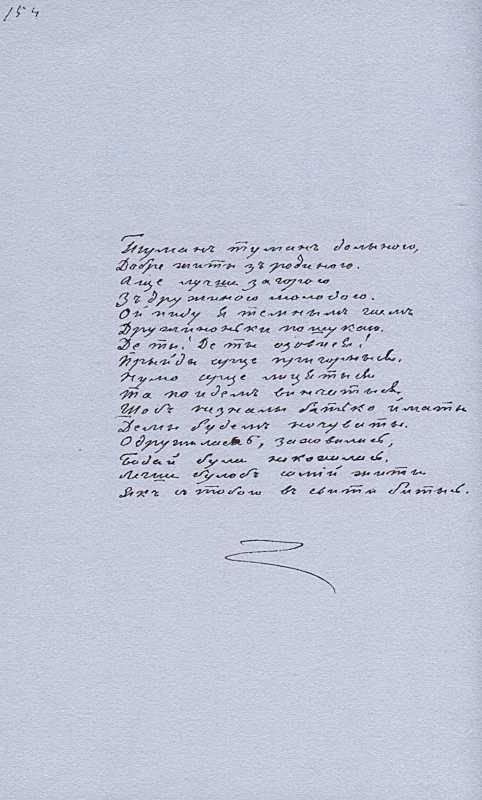 154
Туманъ туманъ долыною,
Добре жыты зъ родиною.
А ще лучше за горою
Зъ дружиною молодою.
Ой пиду я темнымъ гаемъ
Дружиноньки пошукаю.
Де ты! Де ты озовися!
Прыйды серце пригорнысь.
Нумо серце лицятыся
Та поидемъ винчатися,
Щобъ не зналы батько й маты
Де мы будемъ ночуваты.
Одружилась, заховалась,
Бодай була не кохалась.
Легше булобъ самій жити
Якъ съ тобою въ свити битысь.